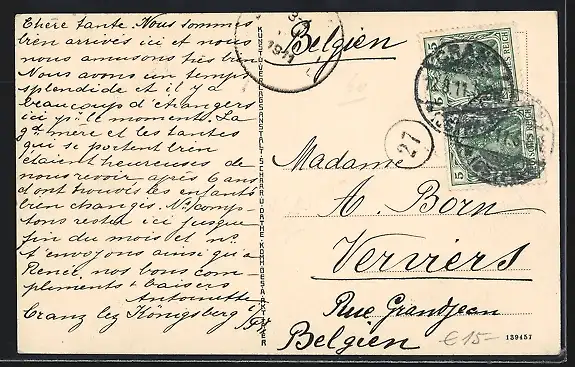 Chère tante. Nous sommes
bien arrivés ici et nous
nous amusons très bien
Nous avons un temps
splendide et il y a
beaucoup d'étrangers
ici pr. le moment. La
gd. mère et les tantes
qui se portent bien
étaient heureuses de
nous revoir, après 6 ans
d'ont trouvés les enfants
bien changés. Ns. comp-
tons rester ici jusque
fin du mois et ns.
t'envoyons ainsi qu'à
Renée, nos bons com-
pliments & baisers
Antoinette
Cranz bez Königsberg
KUNSTVERLAGSANSTALT SCHAAR & DATHE, KOMM.-GES. A. AKT. TRIER
1911
Belgien
5 DEUTSCHES REICH 5
CRANZ
5 DEUTSCHES REICH 5
27
Madame
A. Born
Verviers
Rue Grandjean
Belgien
€ 15-
139457